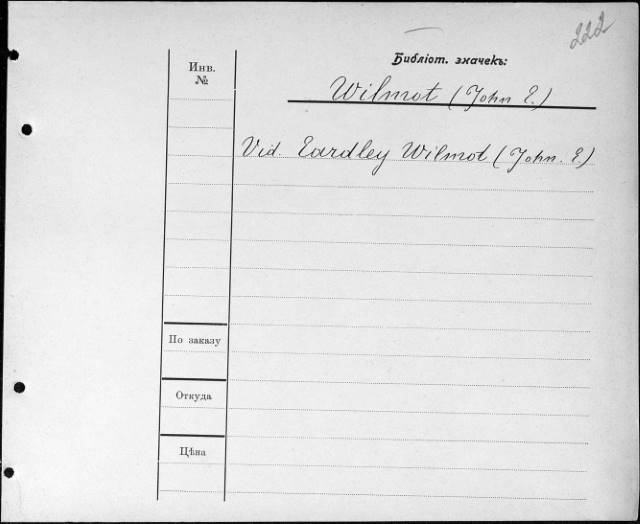 222
Библіот. значекъ:
Инв.
№
Wilmot (John E.)
Vid. Eardley Wilmot (John. E)
По заказу
Откуда
Цѣна